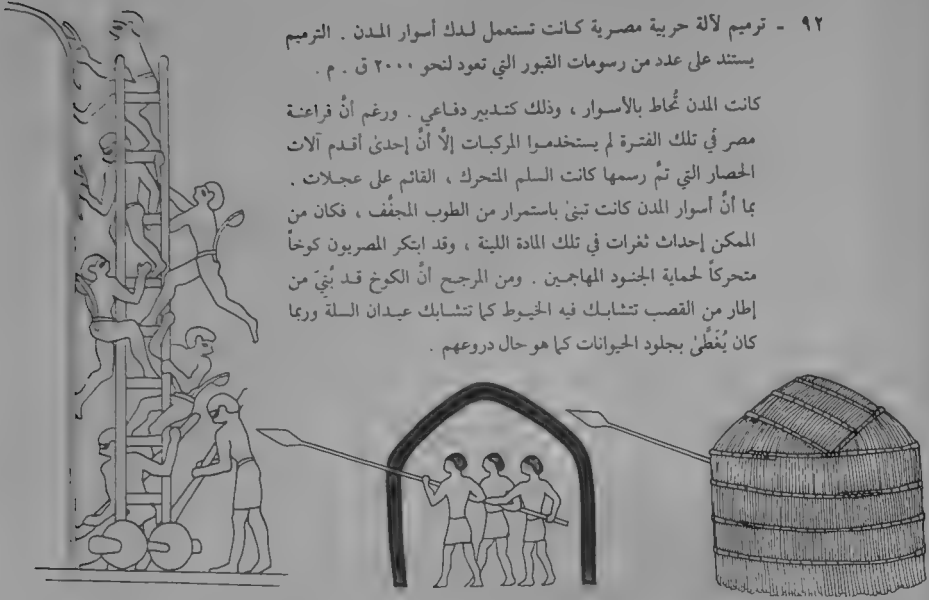 ٩٢ - ترميم لآلة حربية مصرية كانت تستعمل لدك أسوار المدن . الترميم
يستند على عدد من رسومات القبور التي تعود لنحو ٢٠٠٠ ق . م .
كانت المدن تُحاط بالأسوار ، وذلك كتدبير دفاعي . ورغم أنَّ فراعنة
مصر في تلك الفترة لم يستخدموا المركبات إلَّا أنَّ إحدىٰ أقدم آلات
الحصار التي تمَّ رسمها كانت السلم المتحرك ، القائم على عجلات .
بما أنَّ أسوار المدن كانت تبنىٰ باستمرار من الطوب المجفَّف ، فكان من
الممكن إحداث ثغرات في تلك المادة اللينة ، وقد ابتكر المصريون كوخاً
متحركاً لحماية الجنود المهاجمين . ومن المرجح أنَّ الكوخ قد بُنِيَ من
إطار من القصب تتشابك فيه الخيوط كما تتشابك عيدان السلة وربما
كان يُغَطَّىٰ بجلود الحيوانات كما هو حال دروعهم .